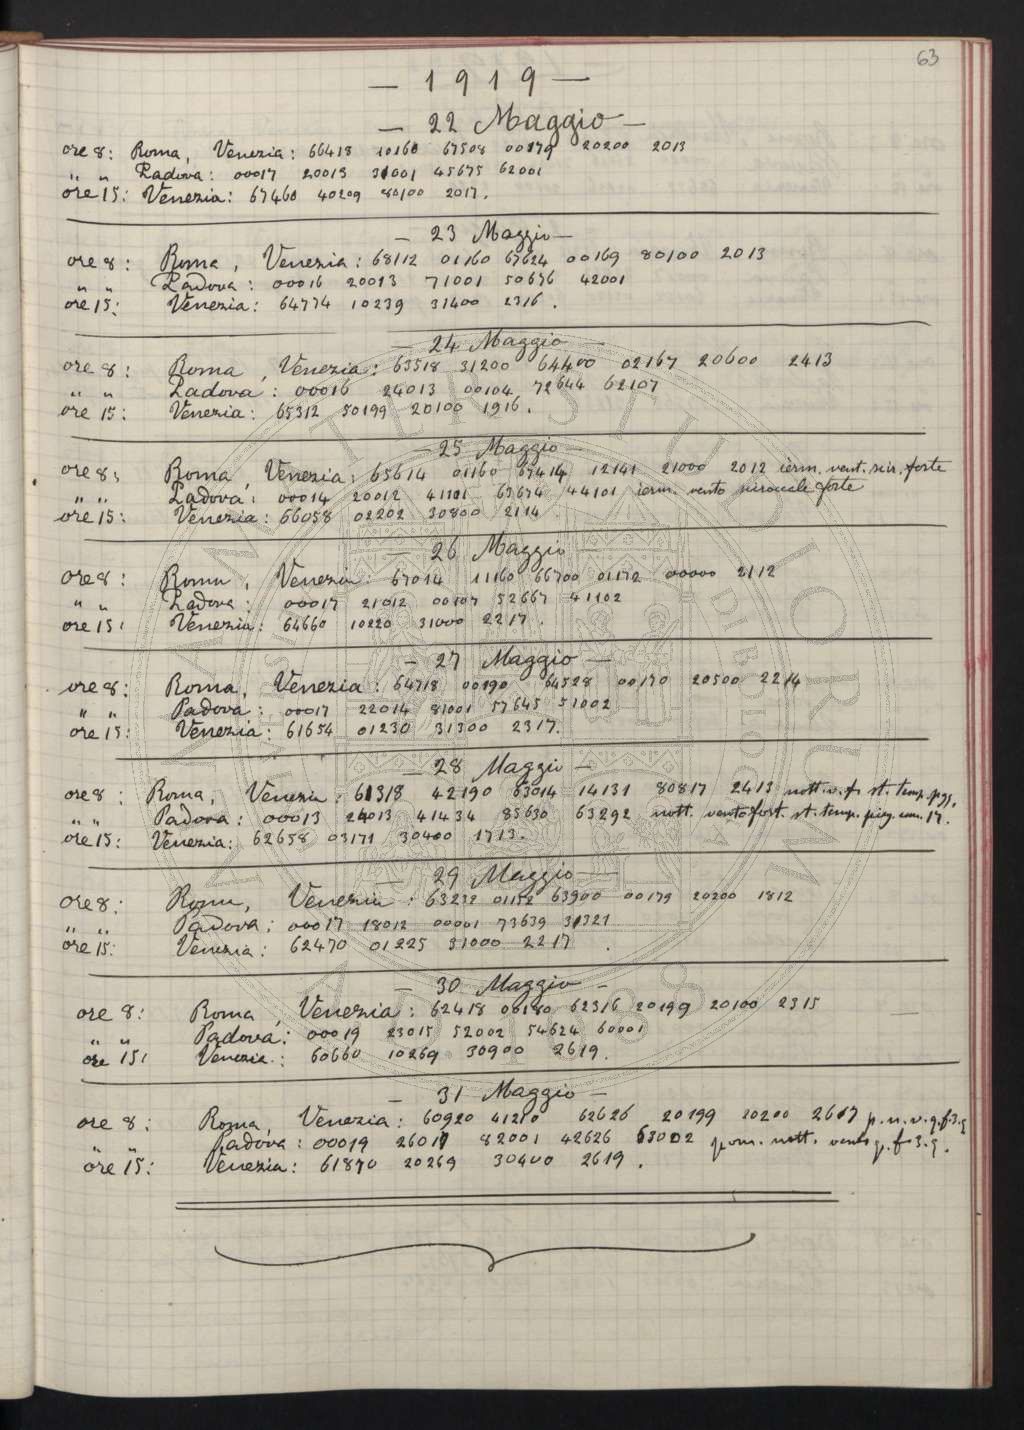 63
— 1919 —
— 22 Maggio —
ore 8: Roma, Venezia: 66418 10160 67508 00179 20200 2013
" " Padova: 00017 20013 31001 45675 62001
ore 15: Venezia: 67460 40209 80100 2017.
— 23 Maggio —
ore 8: Roma, Venezia: 68112 01160 67624 00169 80100 2013
" " Padova: 00016 20013 71001 50676 42001
ore 15: Venezia: 64774 10239 31400 2316.
— 24 Maggio —
ore 8: Roma, Venezia: 63518 31200 64400 02167 20600 2413
" " Padova: 00016 24013 00104 72644 62107
ore 15: Venezia: 65312 50199 20100 1916.
— 25 Maggio —
ore 8: Roma, Venezia: 65614 01160 67414 12141 21000 2012 ierm. vent. scir. forte
" " Padova: 00014 20012 41101 67674 44101 ierm. vento sciroccale forte
ore 15: Venezia: 66058 02202 30800 2114
— 26 Maggio —
ore 8: Roma, Venezia: 67014 11160 66700 01172 00000 2112
" " Padova: 00017 21012 00107 52667 41102
ore 15: Venezia: 64660 10220 31000 2217.
— 27 Maggio —
ore 8: Roma, Venezia: 64718 00190 64528 00170 20500 2214
" " Padova: 00017 22014 81001 57645 51002
ore 15: Venezia: 61654 01230 31300 2317.
— 28 Maggio —
ore 8: Roma, Venezia: 61318 42190 63014 14131 80817 2413 nott. v. f. st. temp. pgg.
" " Padova: 00013 24013 41434 85630 63292 nott. vento fort. st. temp. piog. mm. 17.
ore 15: Venezia: 62658 03171 30400 1713.
— 29 Maggio —
ore 8: Roma, Venezia: 63232 01152 63900 00179 20200 1812
" " Padova: 00017 18012 00001 73639 31321
ore 15: Venezia: 62470 01225 31000 2217.
— 30 Maggio —
ore 8: Roma, Venezia: 62418 06180 62316 20199 20100 2315
" " Padova: 00019 23015 52002 54624 60001
ore 15: Venezia: 60660 10269 30900 2619.
— 31 Maggio —
ore 8: Roma, Venezia: 60920 41210 62626 20199 20200 2617 p. n. v. g. f 3. g
" Padova: 00019 26017 82001 42626 63002 pom. nott. vento g. f 3. g.
ore 15: Venezia: 61870 20269 30400 2619.